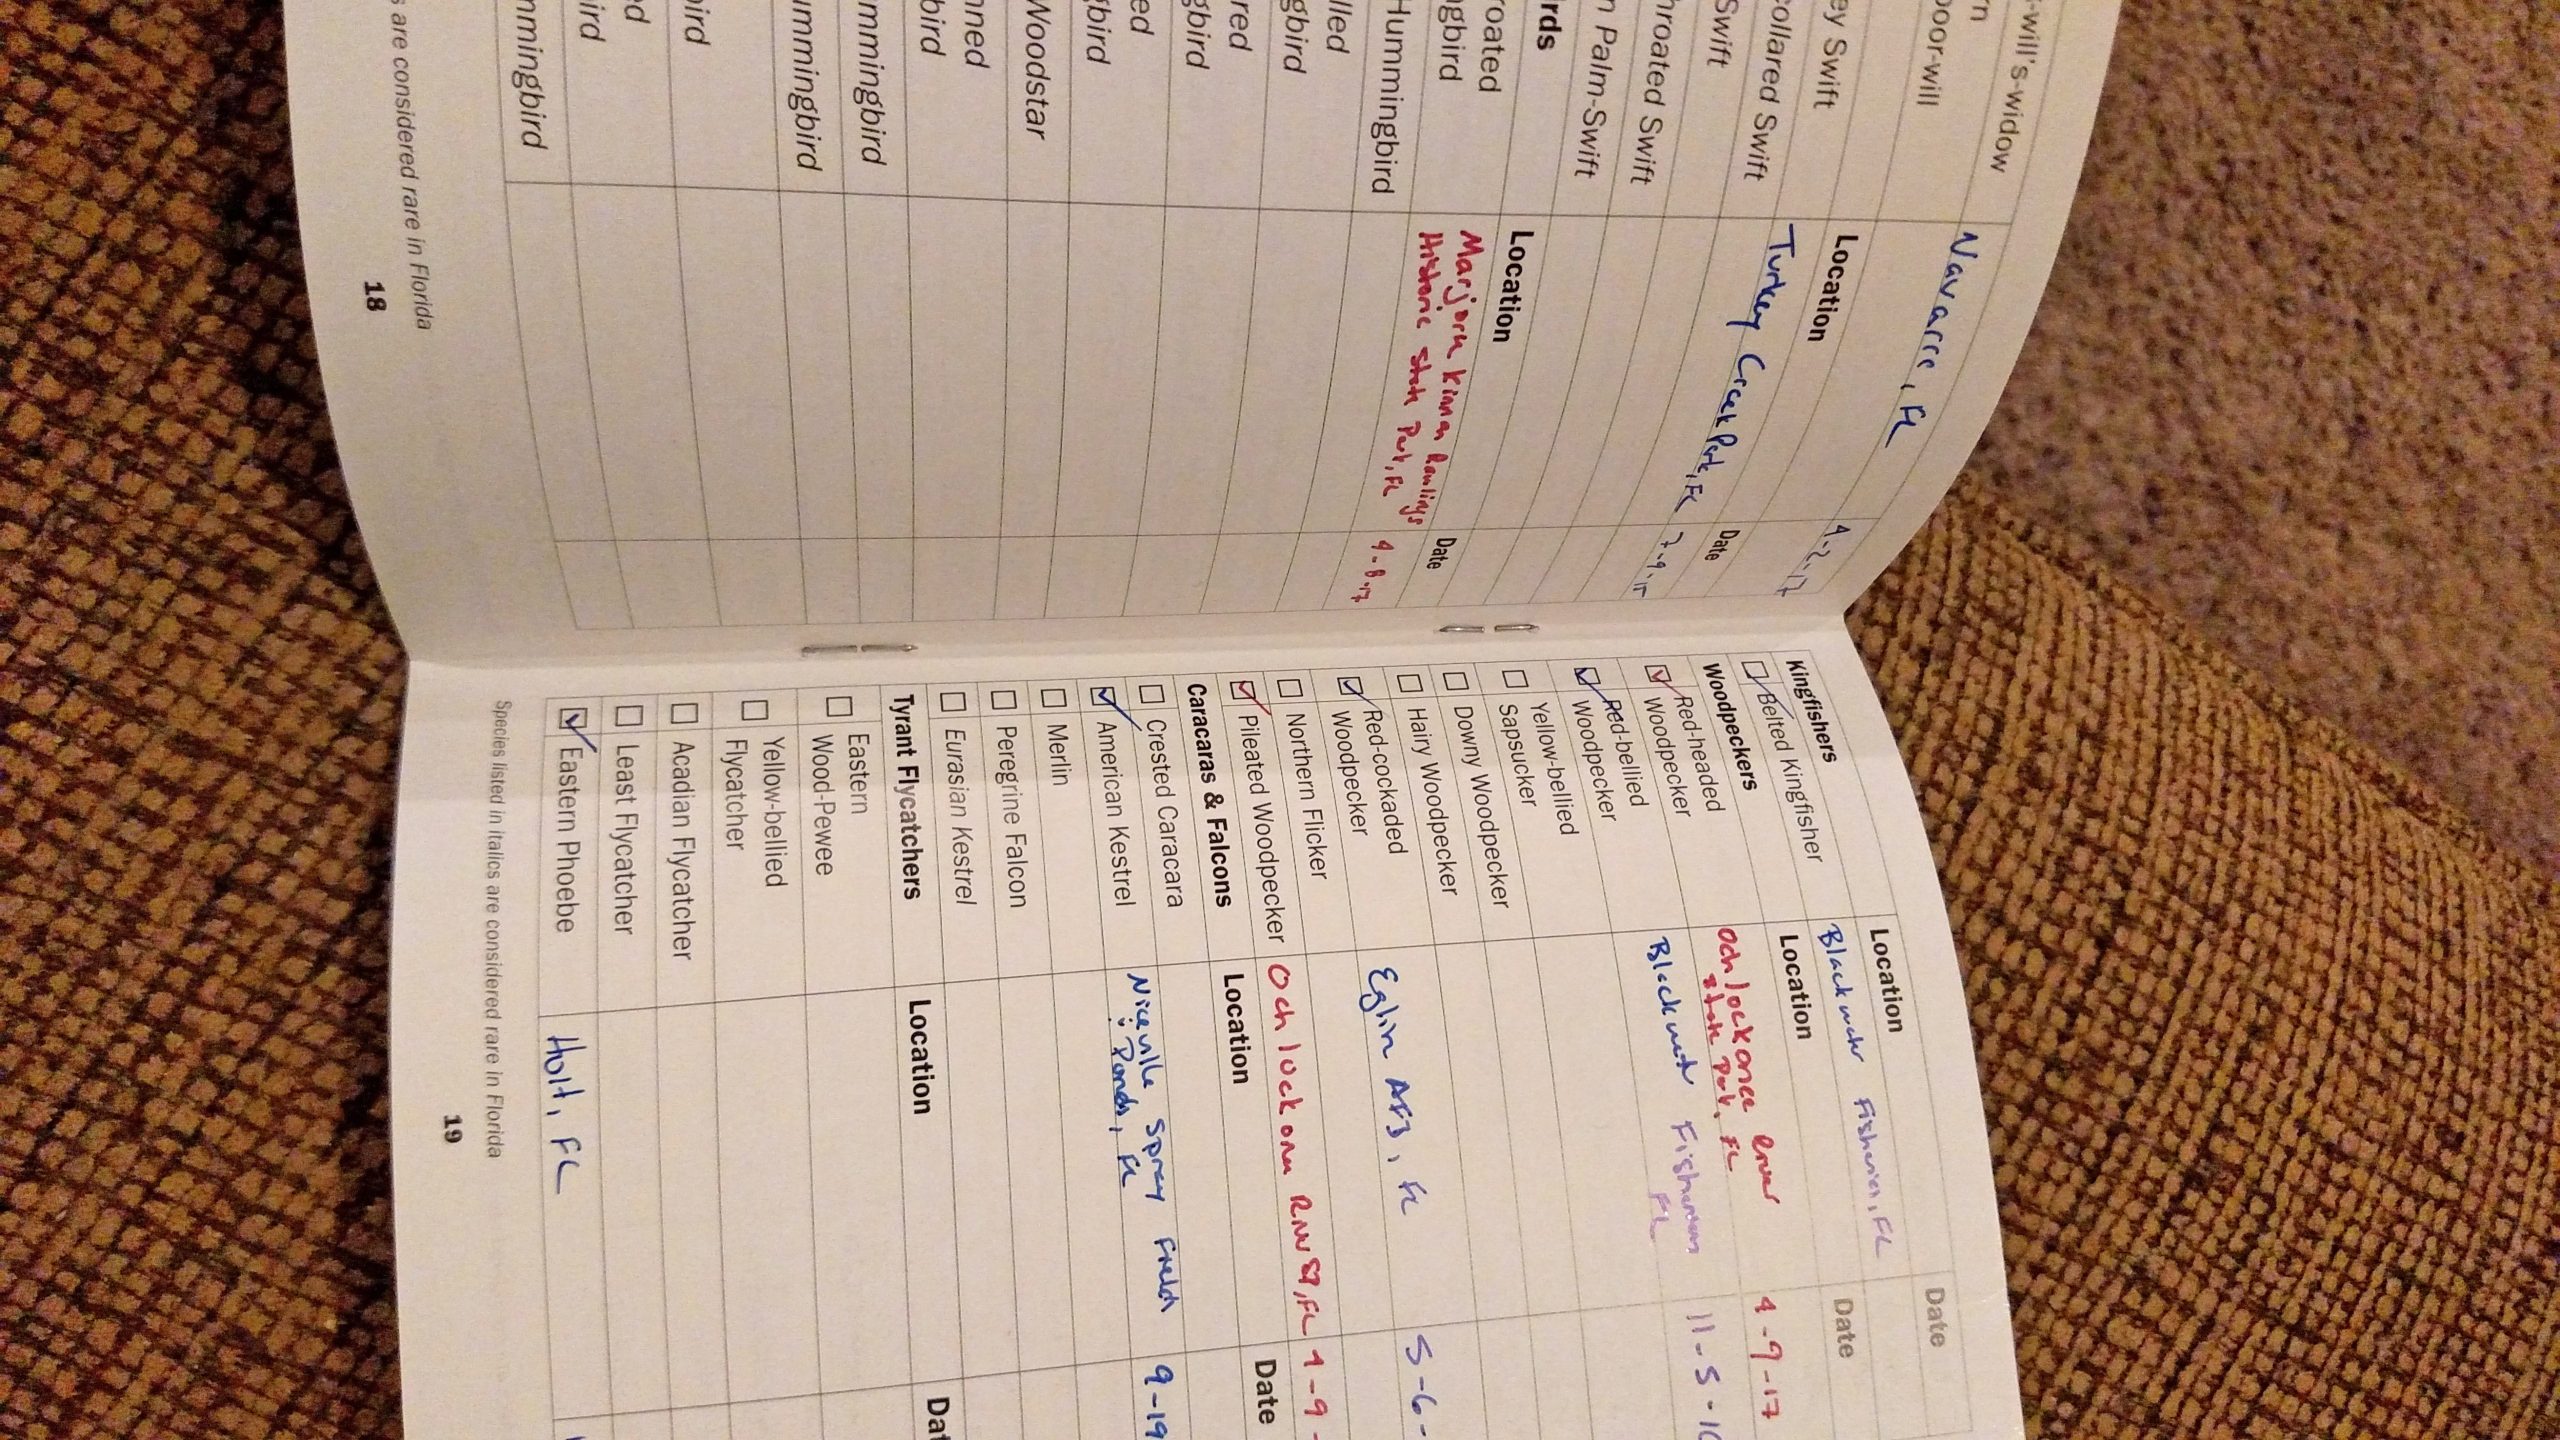 -will's-widow
Navarre, FL
4-2-17
oor-will
Location
Date
ey Swift
Turkey Creek Park, FL
7-9-15
ollared Swift
Swift
hroated Swift
n Palm-Swift
rds
Location
Date
roated
gbird
Marjorie Kinnan Rawlings
Historic State Park, FL
4-8-17
Hummingbird
lled
gbird
red
gbird
ed
gbird
Woodstar
nned
bird
mmingbird
ummingbird
bird
ed
ird
mmingbird
s are considered rare in Florida
18
Kingfishers
Location
Date
Belted Kingfisher
Blackwater Fisheries, FL
Woodpeckers
Location
Date
Red-headed
Woodpecker
Ochlockonee River
State Park, FL
4-9-17
Red-bellied
Woodpecker
Blackwater Fisheries
FL
11-5-16
Yellow-bellied
Sapsucker
Downy Woodpecker
Hairy Woodpecker
Red-cockaded
Woodpecker
Eglin AFB, FL
5-6-
Northern Flicker
Pileated Woodpecker
Ochlockonee River SP, FL
4-9-
Caracaras & Falcons
Location
Date
Crested Caracara
American Kestrel
Niceville Spray Field
Ponds, FL
9-19
Merlin
Peregrine Falcon
Eurasian Kestrel
Tyrant Flycatchers
Location
Dat
Eastern
Wood-Pewee
Yellow-bellied
Flycatcher
Acadian Flycatcher
Least Flycatcher
Eastern Phoebe
Holt, FL
Species listed in italics are considered rare in Florida
19